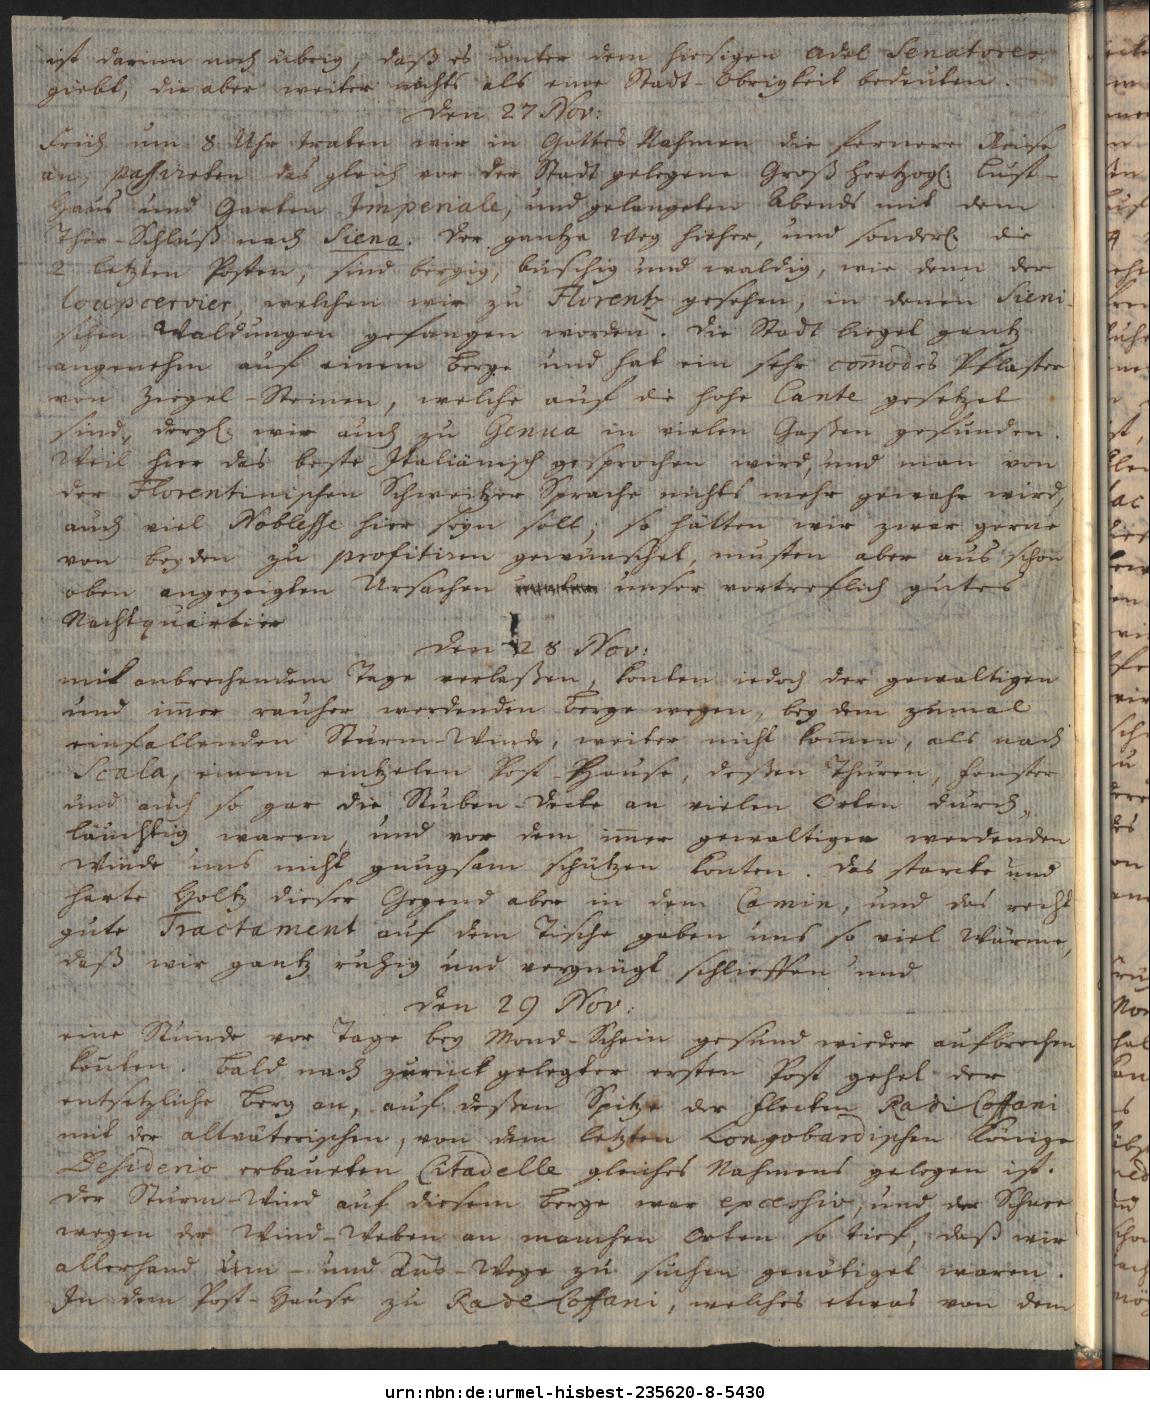 ist darinn noch übrig, daß es unter dem hiesigen Adel Senatores
giebt, die aber weiter nichts als eine Stadt-Obrigkeit bedeuten.
den 27 Nov:
Früh um 8 Uhr traten wir in Gottes Nahmen die fernere Reise
an, passireten das gleich vor der Stadt gelegene Groß Hertzogl: Lust-
Haus und Garten Imperiale, und gelangeten Abends mit dem
Thor-Schluß nach Siena. Der gantze Weg hieher, und sonderl: die
2 letzten Posten, sind bergig, buschig und waldig, wie denn der
loupcervier, welchen wir zu Florentz gesehen, in denen Sieni-
schen Waldungen gefangen worden. Die Stadt lieget gantz
angenehm auf einem Berge und hat ein sehr comodes Pflaster
von Ziegel-Steinen, welche auf die hohe Cante gesetzet
sind, dergl: wir auch zu Genua in vielen Gaßen gefunden.
Weil hier das beste Italiänisch gesprochen wird, und man von
der Florentinischen Schweitzer Sprache nichts mehr gewahr wird,
auch viel Noblesse hier seyn soll; so hätten wir zwar gerne
von beyden zu profitiren gewünschet, musten aber aus schon
oben angezeigten Ursachen unser vortreflich gutes
Nachtquartier
den 28 Nov:
mit anbrechendem Tage verlaßen, konten iedoch der gewaltigen
und imer rauher werdenden Berge wegen, bey dem zumal
einfallenden Sturm-Winde, weiter nicht komen, als nach
Scala, einem eintzelen Post-Hause, deßen Thüren, Fenster
und auch so gar die Stuben-Decke an vielen Orten durch„
läuchtig waren, und vor dem imer gewaltiger werdenden
Winde uns nicht gnugsam schützen konten. Das starcke und
harte Holtz dieser Gegend aber in dem Camin, und das recht
gute Tractament auf dem Tische gaben uns so viel Wärme,
daß wir gantz ruhig und vergnügt schlieffen und
den 29 Nov:
eine Stunde vor Tage bey Mond-Schein gesund wieder aufbrechen
konten. Bald nach zurück gelegter ersten Post gehet der
entsetzliche Berg an, auf deßen Spitze der Flecken Radi Coffani
mit der altväterischen, von dem letzten Longobardischen Könige
Desiderio erbaueten Citadelle gleiches Nahmens gelegen ist.
Der Sturm-Wind auf diesem Berge war excessiv, und der Schnee
wegen der Wind-Weben an manchen Orten so tief, daß wir
allerhand Um- und Aus-Wege zu suchen genötiget waren.
In dem Post-Hause zu Rade Coffani, welches etwas von dem
urn:nbn:de:urmel-hisbest-235620-8-5430